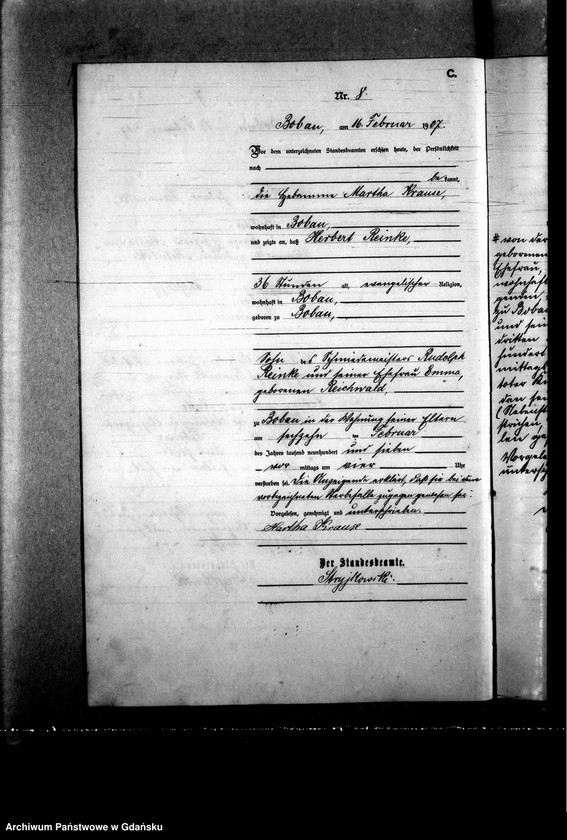 C.
Nr. 8.
Bobau, am 16. Februar 1907.
Vor dem unterzeichneten Standesbeamten erschien heute, der Persönlichkeit
nach
bekannt,
die Hebamme Martha Krause,
wohnhaft in Bobau,
und zeigte an, daß Herbert Reinke,
36 Stunden alt, evangelischer Religion,
wohnhaft in Bobau,
geboren zu Bobau,
Sohn des Schmiedemeisters Rudolph
Reinke und seiner Ehefrau Emma,
geborenen Reichwald,
zu Bobau in der Wohnung seiner Eltern
am sechzehn im Februar
des Jahres tausend neunhundert und sieben
vor mittags um vier Uhr
verstorben sei. Die Anzeigende erklärt, daß sie bei dem
vorbezeichneten Sterbefalle zugegen gewesen sei.
Vorgelesen, genehmigt und unterschrieben.
Martha Krause
Der Standesbeamte.
Stryjkowski.
* von der
geborenen
Ehefrau,
wohnhaft
zu Bobau
und
dritten
hundert
mittag
toter
strichen,
Vorgele
untersch
Archiwum Państwowe w Gdańsku